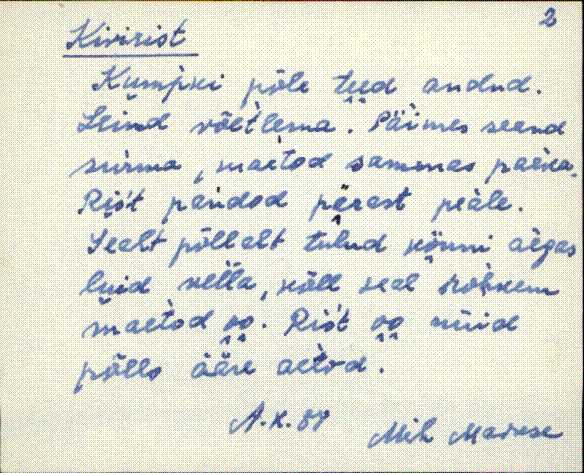 2
Kivirist
Kumpki põle teed andnd.
Leind võetlema. Päimes seand
surma, maetod sammas paeka.
Rist pandod pärast peäle.
Sealt põllalt tulnd künni aegas
luid vella, küll seal rohkem
maetod oo. Rist oo nüid
põllo ääre aetod.
Mih